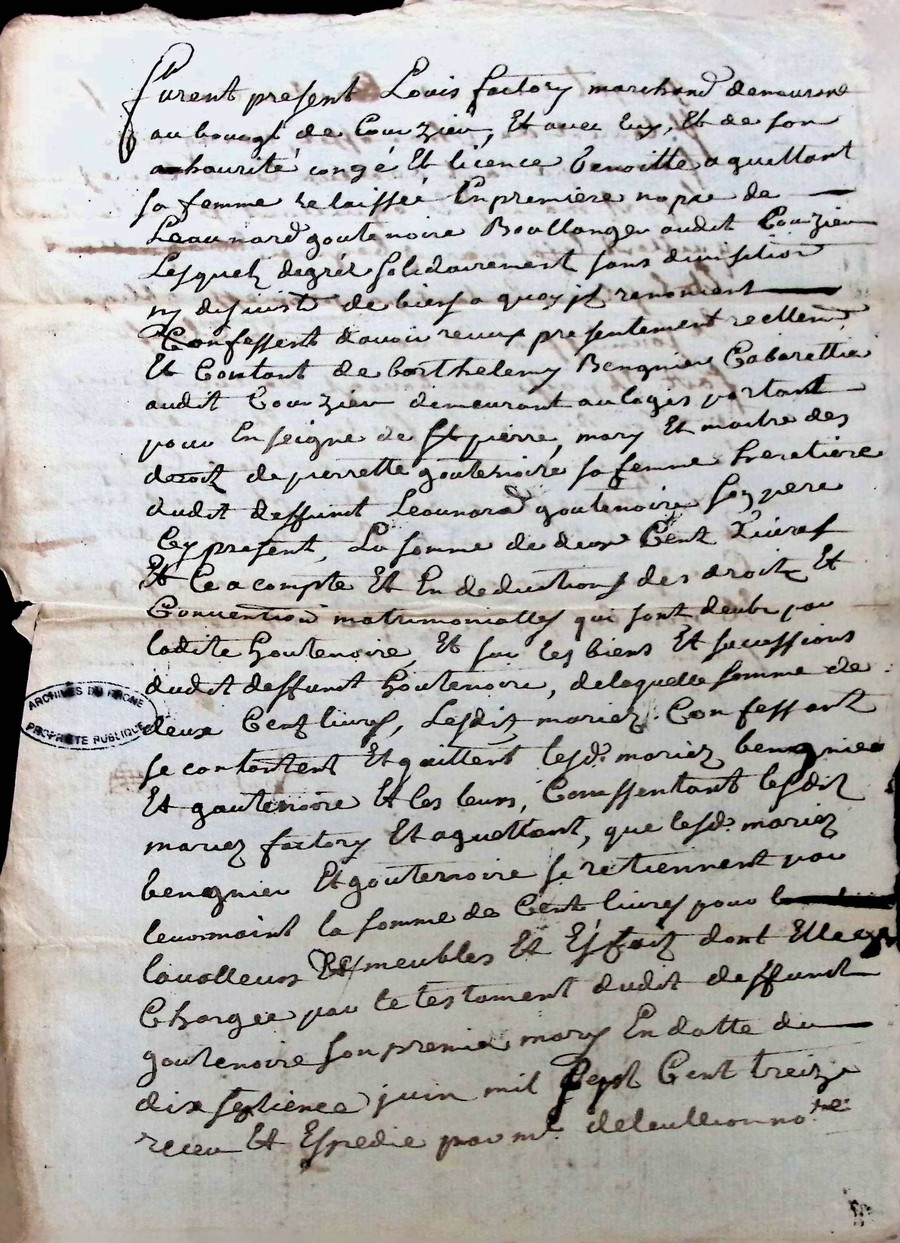 furent present Louis factory marchand demeurant
au bourgt de Courzieu, Et avec luy, Et de son
authaurité congé Et licence Benoitte aquettant
sa femme relaissée En premiere nopse de
Leaunard goutenoire Boullanger audit Courzieu
Lesquels degrés solidairement sans divisition
ny de de biens a quoy jls renoncent
Confessent davoir receux presentement reellemt
Et Contant de barthelemy Bengnier Cabarettier
audit Courzieu demeurant au logis portant
pour Enseigne de St pierre, mary Et maitre des
droit de pierrette goutenoire sa femme heretiere
dudit deffunt Leaunard goutenoire son pere
Cy present, La somme de deux Cent Livres
Et Ce a compte Et En deductions des droits Et
Convention matrimonialles qui sont deubt par
ladite goutenoire, Et sur les biens Et successions
dudit deffunt goutenoire, delaquelle somme de
deux Cent livres, Lesdits mariez Confessent
se contentent Et quittent lesd. mariez bengnier
Et goutenoire Et les leurs, Conssentant lesdits
mariez factory Et aquettant, que lesd. mariez
bengnier Et goutenoire se retiennent par
leurs maint la somme de Cent livres pour
la valleurs Des meubles Et Effait dont Elle est
Chargée par le testament dudit deffunt
goutenoire son premier mary En datte du
dix septiemes juin mil Sept Cent treize
receu Et Expedie par me. notre
ARCHIVES DU RHONE
PROPRIETE PUBLIQUE